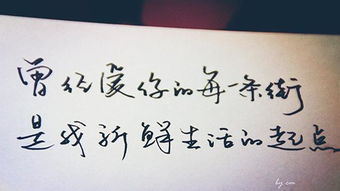 曾经爱你的每一条街
是我新鲜生活的起点